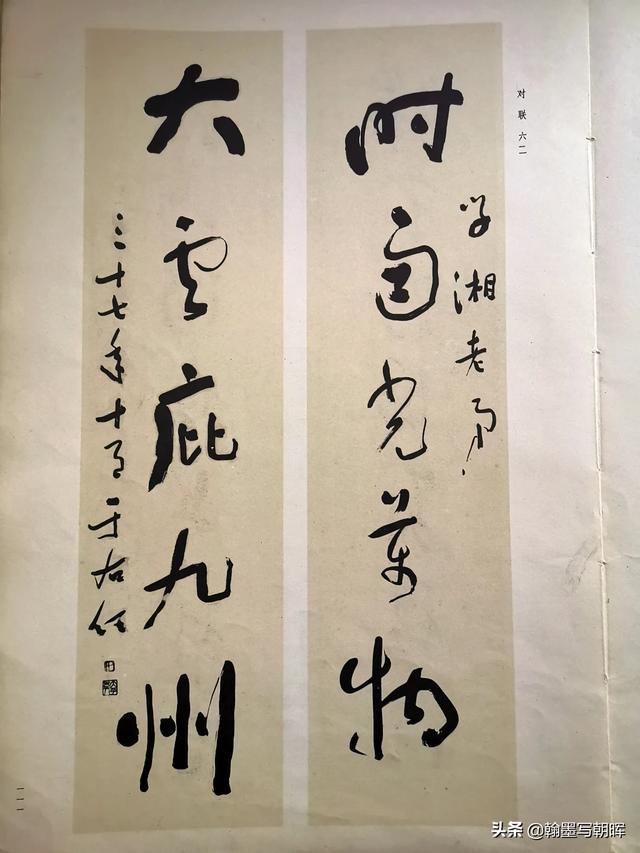 对联 六二
学湘老弟
时雨光萬物
大雲庇九州
三十七年十月 于右任
一一一
头条 @翰墨写朝晖